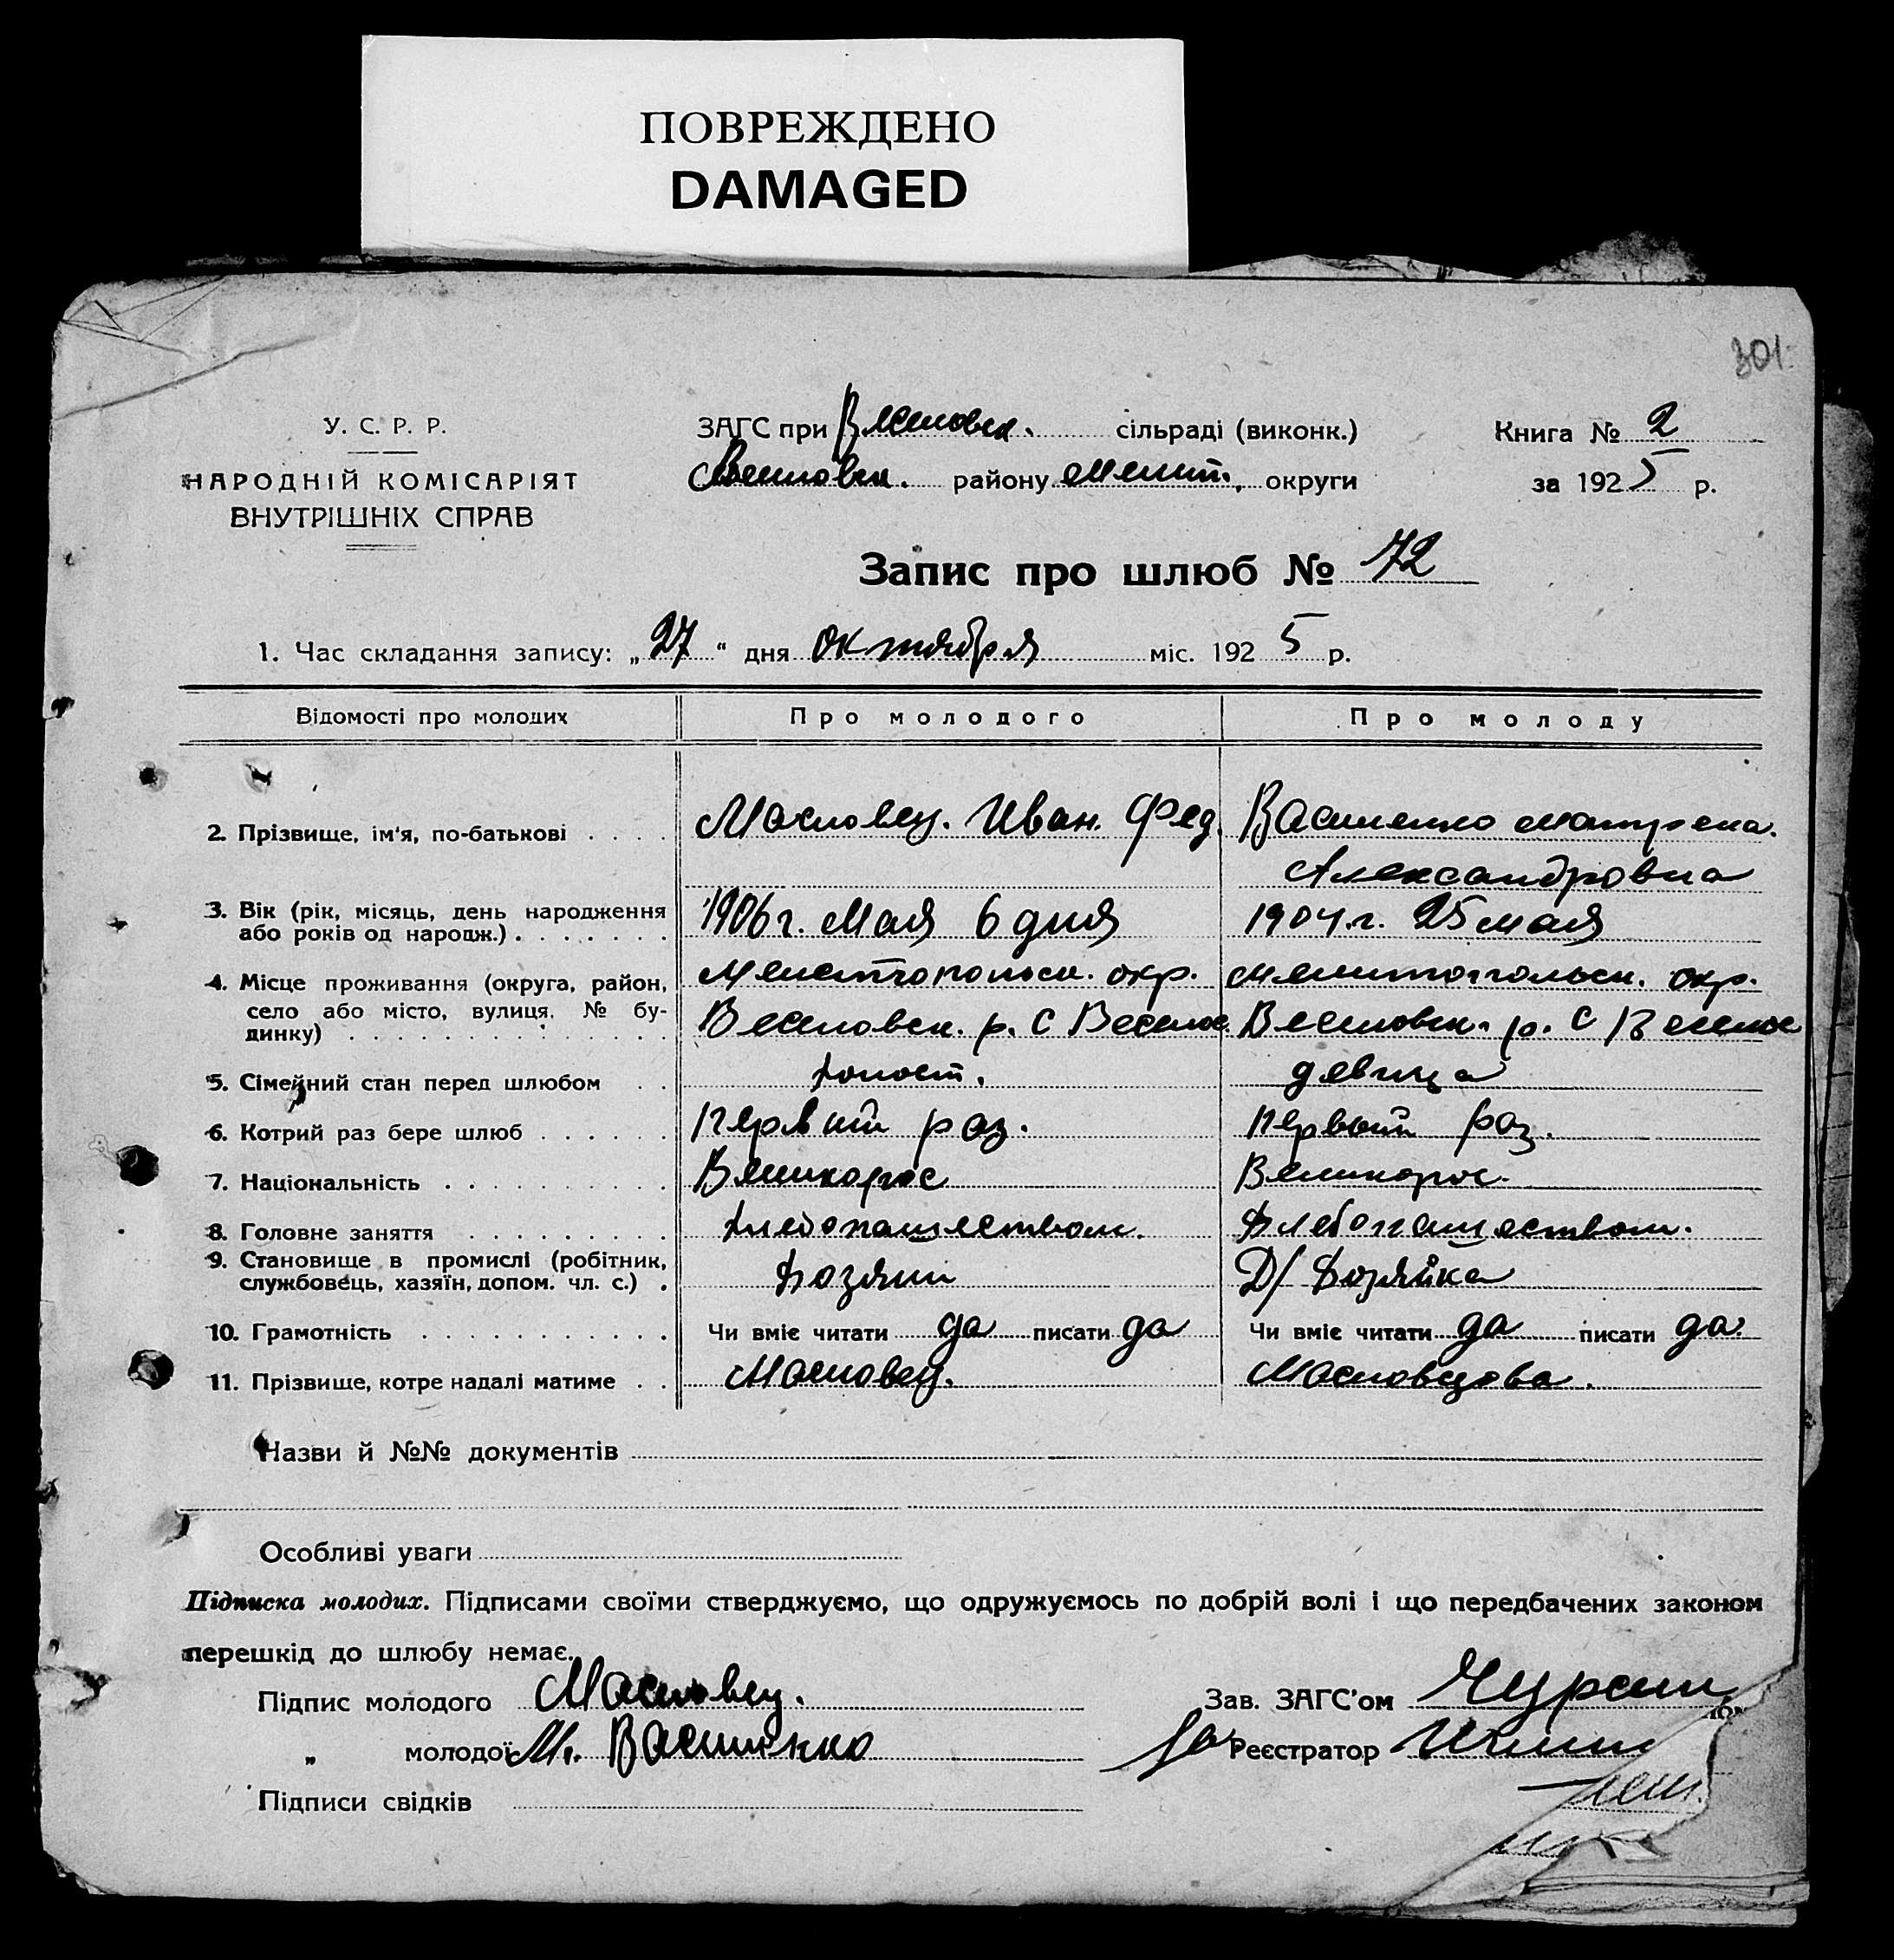 ПОВРЕЖДЕНО
DAMAGED
301
У. С. Р. Р.
НАРОДНІЙ КОМІСАРІЯТ
ВНУТРІШНІХ СПРАВ
ЗАГС при Веселовск. сільраді (виконк.)
Веселовск. району Мелит. округи
Книга № 2
за 1925 р.
Запис про шлюб № 72
1. Час складання запису: „27“ дня октября міс. 1925 р.
Відомості про молодих Про молодого Про молоду
2. Прізвище, ім'я, по-батькові Масловец. Иван. Фед. Василенко Матрена. Александровна
3. Вік (рік, місяць, день народження або років од народж.) 1906 г. Мая 6 дня 1904 г. 25 мая
4. Місце проживання (округа, район, село або місто, вулиця, № будинку) Мелитопольск. окр. Веселовск. р. С Веселое Мелитопольск. окр. Веселовск. р. С Веселое
5. Сімейний стан перед шлюбом холост. девица
6. Котрий раз бере шлюб первый раз. первый раз.
7. Національність Великорос Великорос.
8. Головне заняття хлебопашеством. Хлебопашеством.
9. Становище в промислі (робітник, службовець, хазяїн, допом. чл. с.) Хозяин Д/Хозяйка
10. Грамотність Чи вміє читати да писати да Чи вміє читати да писати да.
11. Прізвище, котре надалі матиме Масловец. Масловцова.
Назви й №№ документів
Особливі уваги
Підписка молодих. Підписами своїми стверджуємо, що одружуємось по добрій волі і що передбачених законом
перешкід до шлюбу немає.
Підпис молодого Масловец. Зав. ЗАГС'ом
„ молодої М. Василенко Реєстратор
Підписи свідків